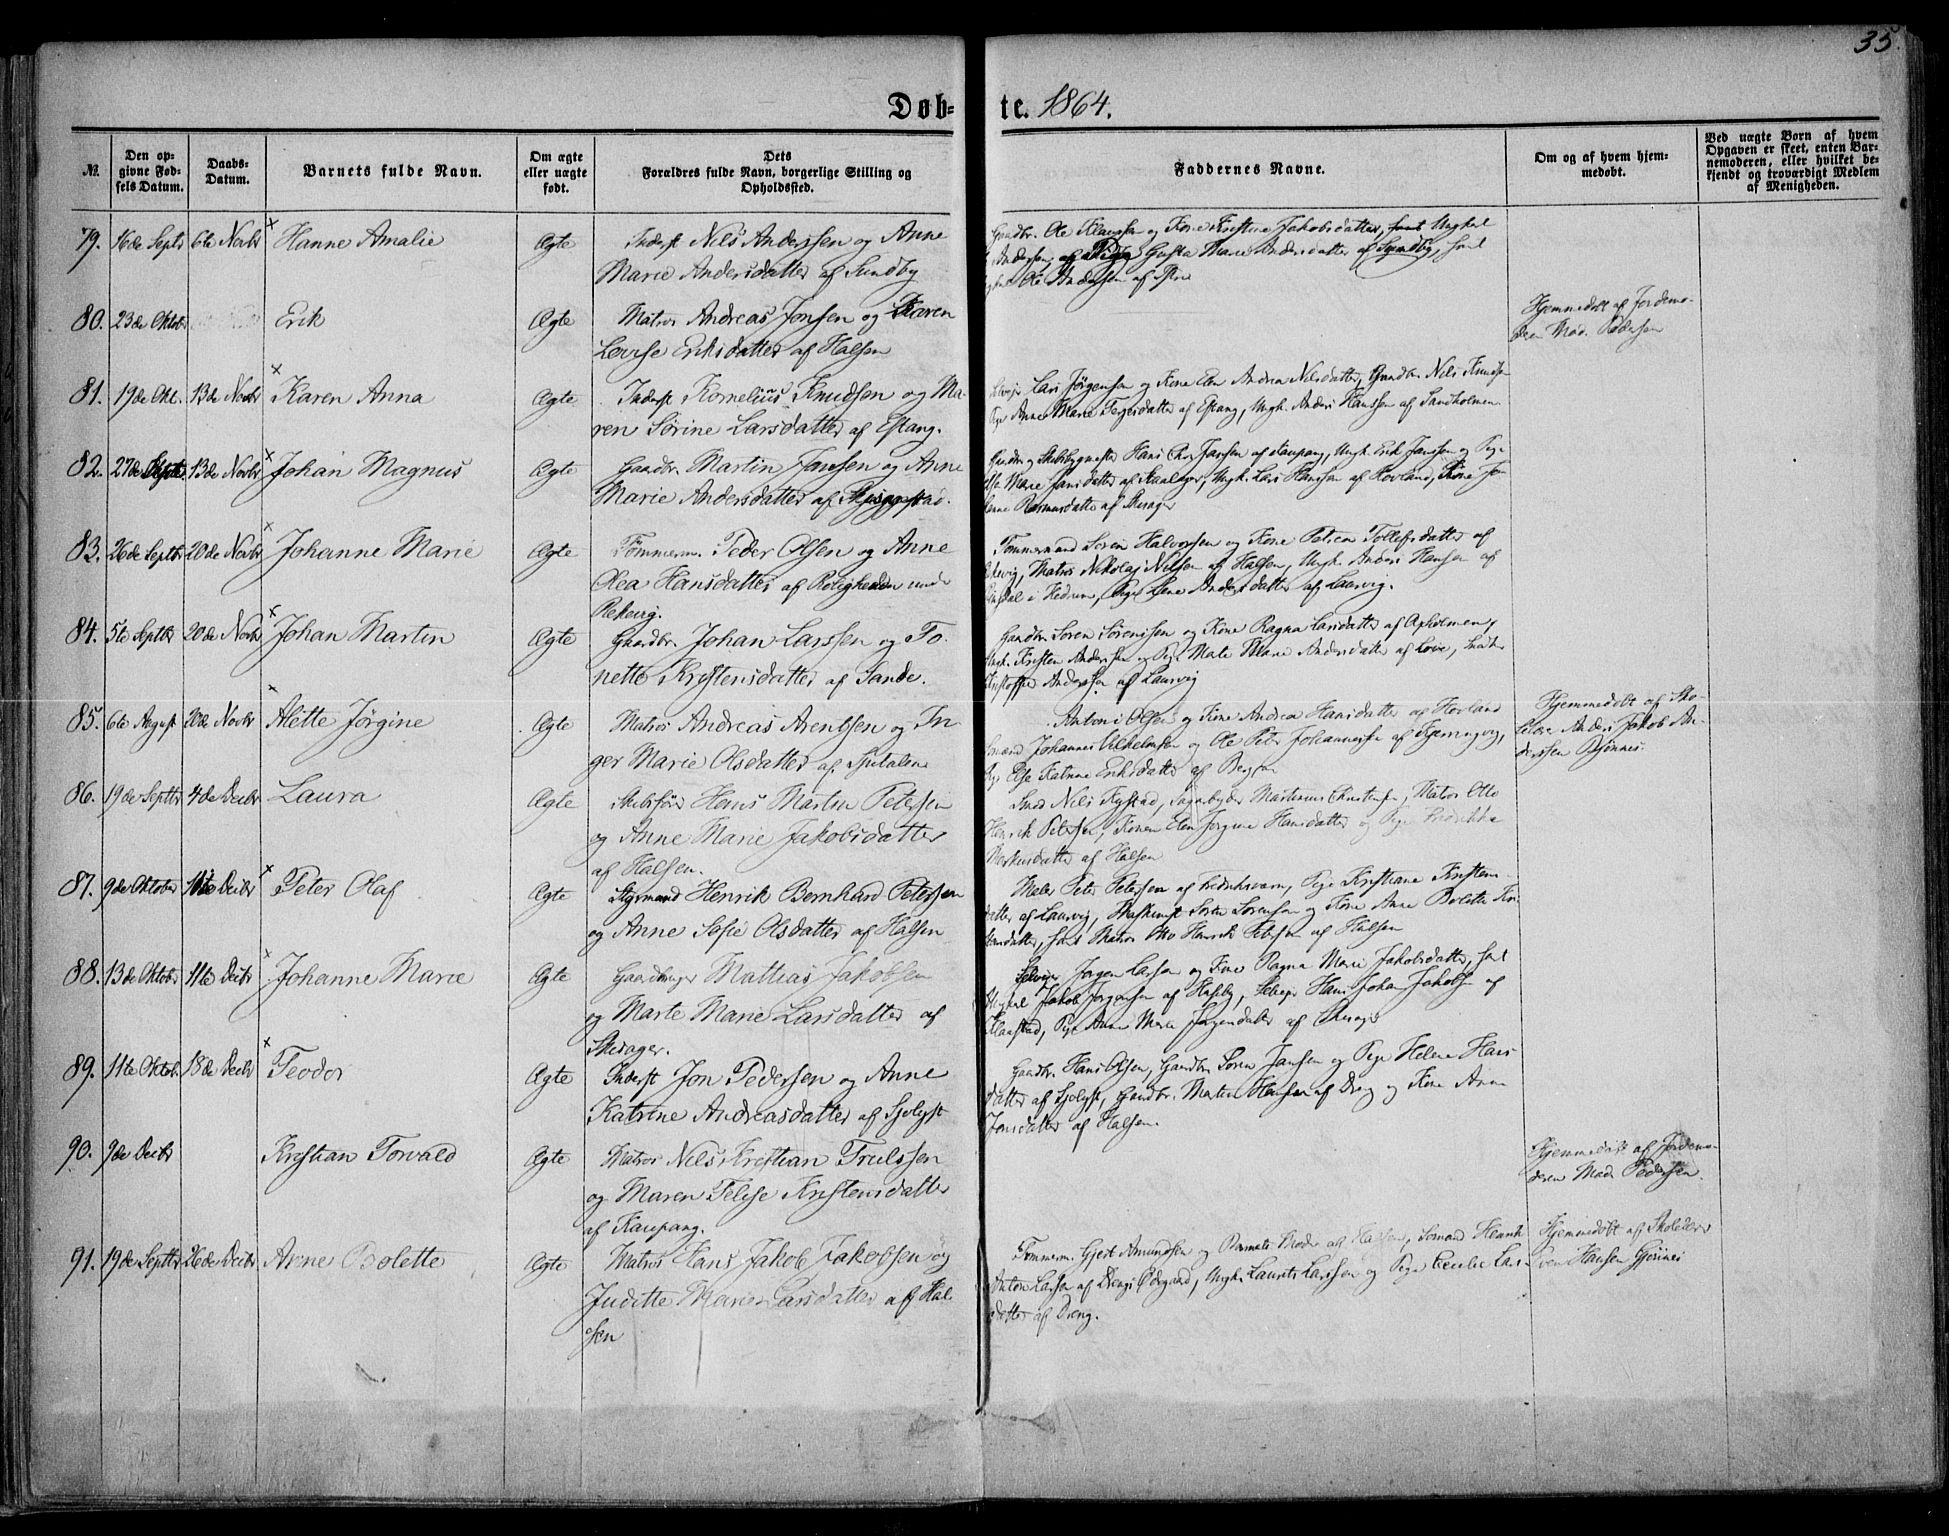 35.
Døb= te. 1864.
№
Den op-
givne Fød-
sels Datum.
Daabs-
Datum.
Barnets fulde Navn.
Om ægte
eller uægte
født.
Dets
Forældres fulde Navn, borgerlige Stilling og
Opholdssted.
Faddernes Navne.
Om og af hvem hjem-
medøbt.
Ved uægte Børn af hvem
Opgaven er skeet, enten Bar-
nemoderen, eller hvilket be-
kjendt og troværdigt Medlem
af Menigheden.
79. 16de Septr 6te Novbr Hanne Amalie Ægte Inderst Nils Anderssen og Anne
Marie Andersdatter af Sundby
Gaardbr. Ole Klaussen og Kone Kristine Jakobsdatter, samt Ungkal
Anderssen, Pige Gusta Marie Andersdatter af Sundby, samt
Ole Anderssen af
80. 23de Oktobr Erik Ægte Matros Andreas Jonsen og Karen
Lovise Eriksdatter af Halsen
Hjemmedøbt af Jordemo-
deren Mad. Pedersen
81. 19de Okt. 13de Novbr Karen Anna Ægte Inderst Kornelius Knudsen og Ma-
ren Sørine Larsdatter af Østang.
Selvejer Lars Jørgensen og Kone Elen Andrea Nilsdatter, Gaardbr. Nils Knudsen
Pige Anne Marie Tegesdatter af Østang, Ungk. Anders Hanssen af Sandholmen
82. 27de Septr 13de Novbr Johan Magnus Ægte Gaardbr. Martin Janssen og Anne
Marie Andersdatter af
Gaardbr og Skibsbygmester Hans Chr. Janssen af Kaupang, Ungk. Erik Janssen og Pige
Marie Jansdatter af Ungk. Lars Hanssen af Hovland, Kone Jo-
hanne Rasmusdatter af Skisager
83. 26de Septbr 20de Novbr Johanne Marie Ægte Tømmerm. Peder Olsen og Anne
Olea Hansdatter af Roligheden under
Rekevig.
Tømmermand Søren Halvorssen og Kone Petrea Tollefsdatter af
Rekevig, Matros Nikolaj Nilsen af Halsen, Ungk. Anders Hansen af
i Hedrum, Pige Andersdatter af Laurvig.
84. 5te Septbr 20de Novbr Johan Martin Ægte Gaardbr. Johan Larssen og To-
nette Kristensdatter af Sande.
Gaardbr. Søren Sørenssen og Kone Ragna Larsdatter af Apholmen,
Ungk. Kristen Anderssen og Pige Mate Marie Andersdatter af Love,
Kristoffer Anderssen af Laurvig
85. 6te August 20de Novbr Alette Jørgine Ægte Matros Andreas Arentsen og In-
ger Marie Olsdatter af
Anton Olsen og Kone Andrea Hansdatter af Hovland
Johannes Vilhelmsen og Ole Peter Johannessen af Kjerringvig,
Pige Else Katrine Eriksdatter af
Hjemmedøbt af Sko-
lelærer Anders Jakob An-
derssen Bjønnes.
86. 19de Septbr 4de Decbr Laura Ægte Skibsfør. Hans Martin Petersen
og Anne Marie Jakobsdatter
af Halsen.
Nils Fystad, Martinius Christensen, Matros Otto
Henrik Petersen, Konen Elen Jørgine Hansdatter og Pige Fredrikke
Markusdatter af Halsen
87. 9de Oktober 11te Decbr Peter Olaf Ægte Styrmand Henrik Bernhard Petersen
og Anne Sofie Olsdatter af Halsen
Maler Peter Petersen af Fredriksværn, Pige Kristiane Kristens-
datter af Laurvig, Maskinist Søren Sørensen og Kone Anne Bolette
samt Matros Otto Henrik Petersen af Halsen
88. 13de Oktober 11te Decbr Johanne Marie Ægte Gaardbruger Mathias Jakobsen
og Marte Marie Larsdatter af
Skisager.
Selvejer Jørgen Larsen og Kone Ragna Marie Jakobsdatter, samt
Ungkal Jakob Jørgensen af Huseby, Selvejer Hans Johan Jakobsen af
Klaastad, Pige Anne Marie Jørgensdatter af Skisager
89. 11te Oktob. 18de Decbr Teodor Ægte Inderst Jon Pedersen og Anne
Katrine Andreasdatter af Sjølyst
Gaardbr. Hans Olsen, Gaardbr. Søren Jansen og Pige Helene Hans-
datter af Sjølyst, Gaardbr. Martin Hansen af Dreng og Kone Anne
Jonsdatter af Halsen.
90. 9de Decbr Kristian Torvald Ægte Matros Nils Kristian Trulssen
og Maren Telise Kristensdatter
af Kaupang.
Hjemmedøbt af Jordemo-
deren Mad. Pedersen.
91. 19de Septbr 26de Decbr Anne Bolette Ægte Matros Hans Jakob Jakobsen og
Juditte Marie Larsdatter af Hal-
sen
Tømmerm. Gjert Amundsen og Mode af Halsen, Sømand Henrik
Anton Larsen af Ødegaard, Ungk. Laurits Larssen og Pige Cecilie Lars-
datter af Dreng.
Hjemmedøbt af Skolelærer
Sven Hansen Gjønnes